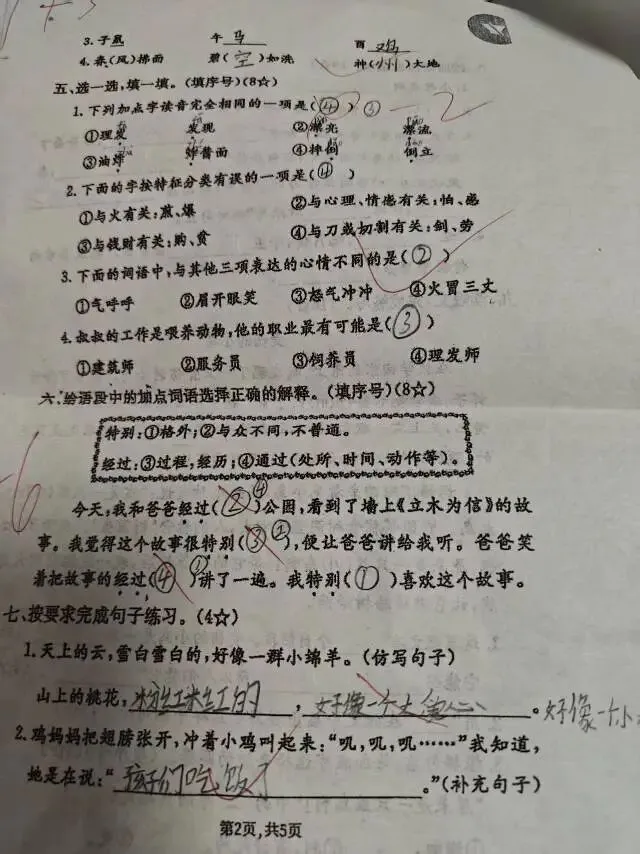 3.子鼠 午马 酉鸡
4.春(风)拂面 碧(空)如洗 神(州)大地
五、选一选,填一填。(填序号)(8☆)
1.下列加点字读音完全相同的一项是(④) ③ -2
①理发 发现 ②漂亮 漂流
③油炸 炸酱面 ④摔倒 倒立
2.下面的字按特征分类有误的一项是(④)
①与火有关:煎、爆 ②与心理、情感有关:怕、感
③与钱财有关:购、贫 ④与刀或切割有关:剑、劳
3.下面的词语中,与其他三项表达的心情不同的是(②)
①气呼呼 ②眉开眼笑 ③怒气冲冲 ④火冒三丈
4.叔叔的工作是喂养动物,他的职业最有可能是(③)
①建筑师 ②服务员 ③饲养员 ④理发师
六、给语段中的加点词语选择正确的解释。(填序号)(8☆)
特别:①格外;②与众不同,不普通。
经过:③过程,经历;④通过(处所、时间、动作等)。
-6
今天,我和爸爸经过(②)④公园,看到了墙上《立木为信》的故
事。我觉得这个故事很特别(③)②,便让爸爸讲给我听。爸爸笑
着把故事的经过(④)讲了一遍。我特别(①)喜欢这个故事。
七、按要求完成句子练习。(4☆)
1.天上的云,雪白雪白的,好像一群小绵羊。(仿写句子)
山上的桃花,粉红粉红的,好像一个大。好像一个小
2.鸡妈妈把翅膀张开,冲着小鸡叫起来:“叽,叽,叽……”我知道,
她是在说:“孩子们吃饭了。”(补充句子)
第2页,共5页